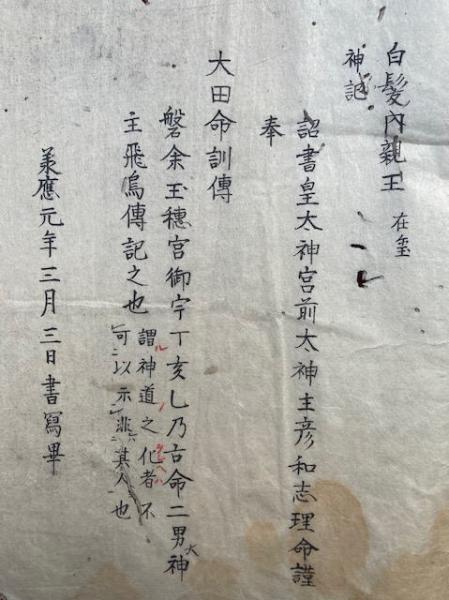 白髮內親王 在璽
神記
詔書皇太神宮前太神主彥和志理命謹
奉
大田命訓傳
磐余玉穗宮御宇丁亥乙乃古命二男大神
主飛鳥傳記之也 謂神道之化者不
可以示非其人也
承應元年三月三日書寫畢